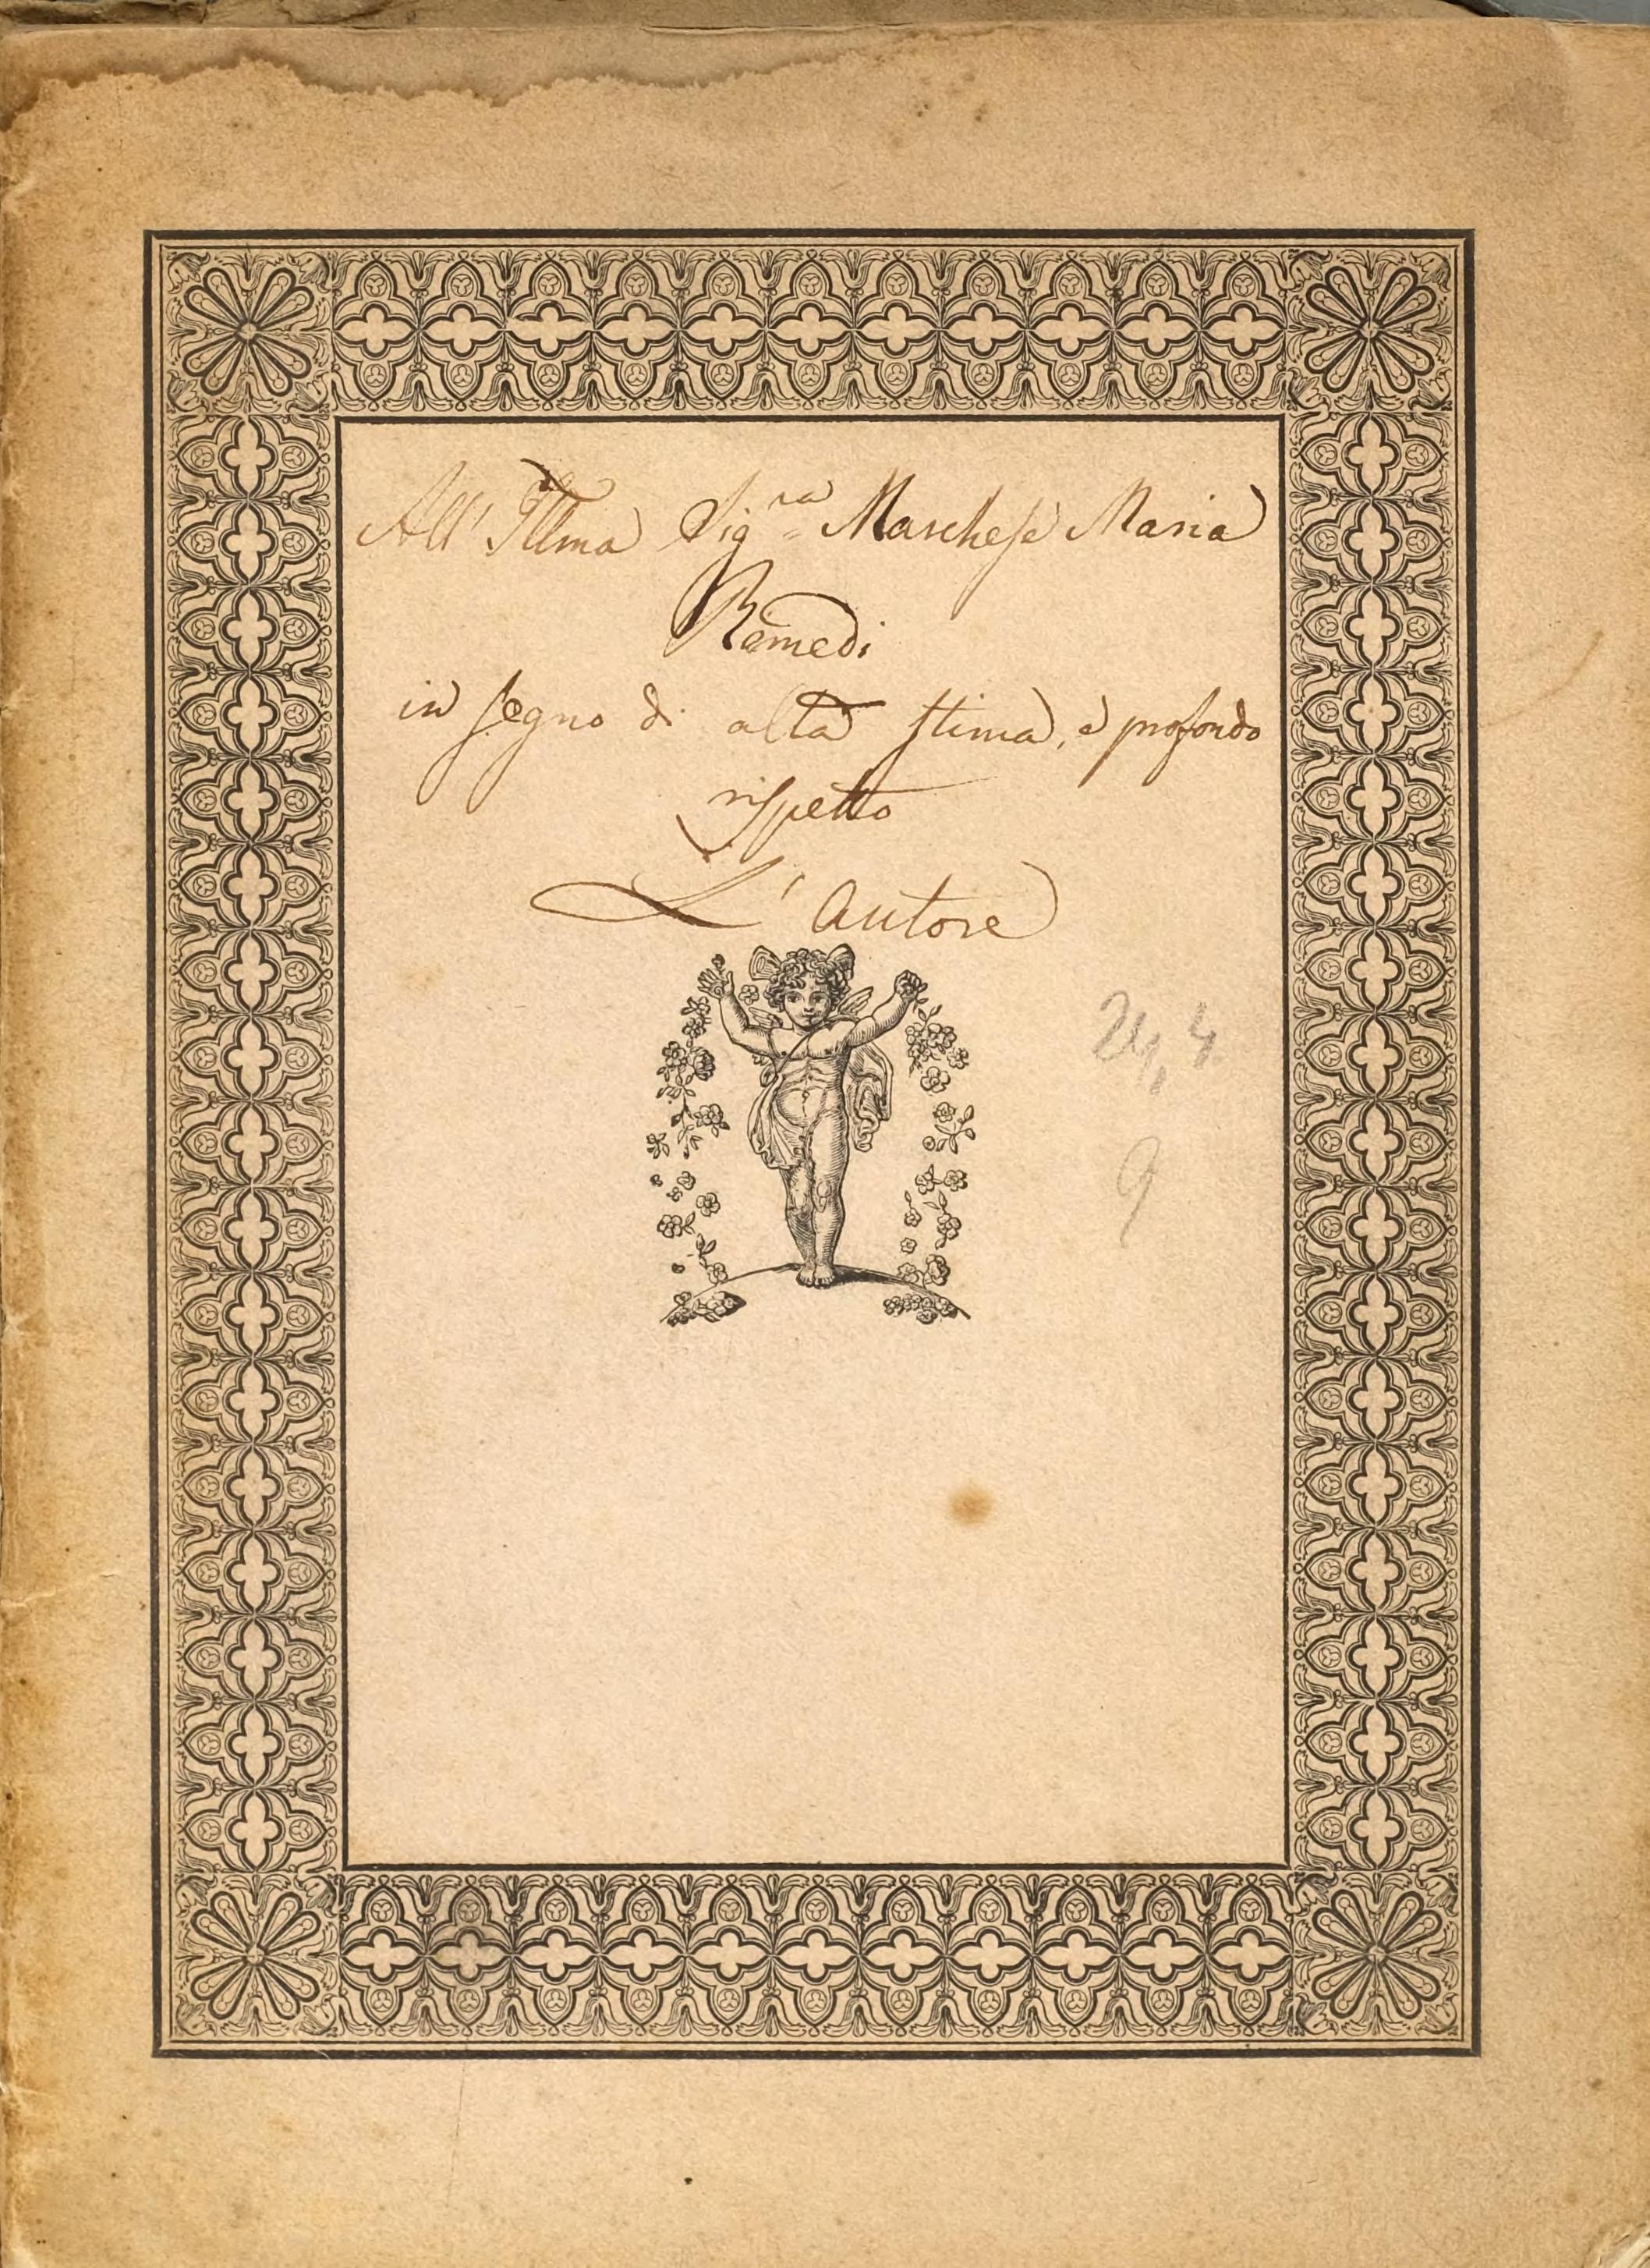 All' Illma Sig.ra Marchesa Maria
Remedi
in segno di alta stima, e profondo
rispetto
L'Autore
24,4
9